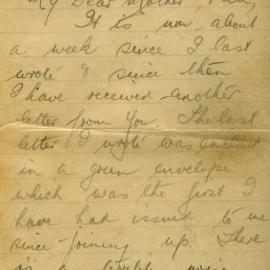 My Dear Mother,
It is now about
a week since I last
wrote & since then
I have received another
letter from you. The last
letter I wrote was enclosed
in a green envelope
which was the first I
have had issued to me
since joining up. There
is a